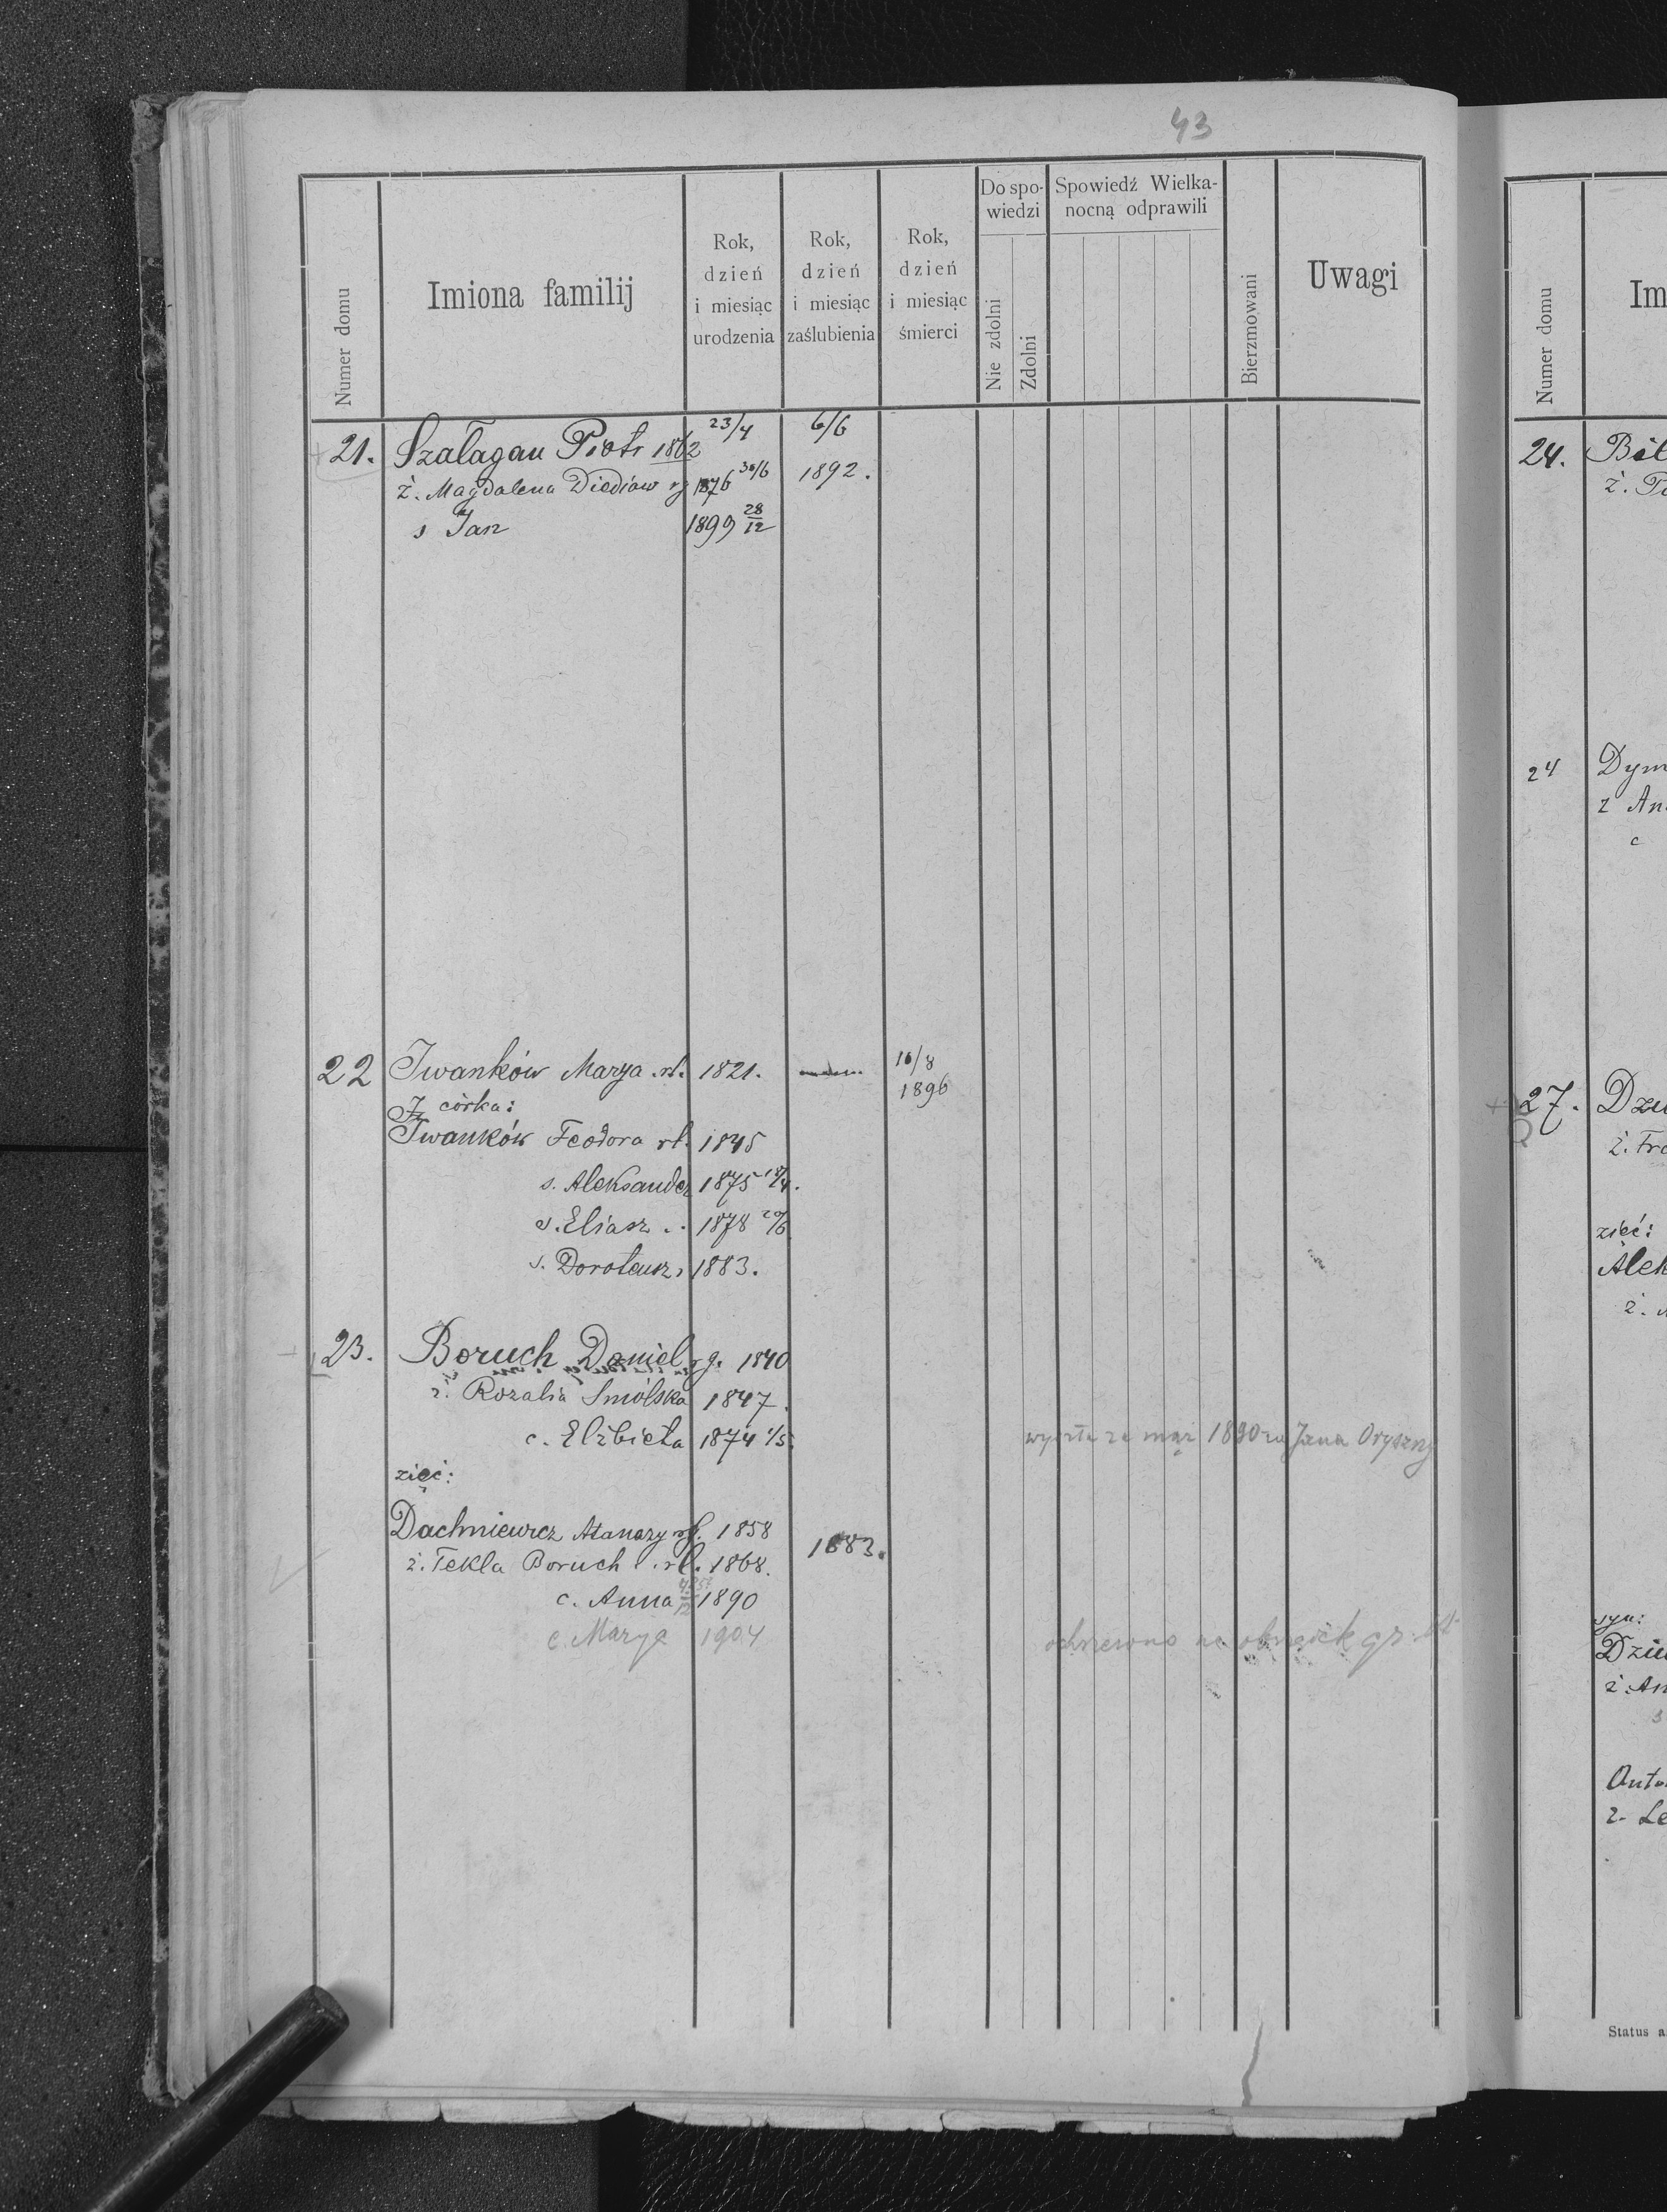 43
Numer domu
Imiona familij
Rok, dzień i miesiąc urodzenia
Rok, dzień i miesiąc zaślubienia
Rok, dzień i miesiąc śmierci
Do spowiedzi
Nie zdolni
Zdolni
Spowiedź Wielkanocną odprawili
Bierzmowani
Uwagi
21. Szałagan Piotr 1862 23/4 6/6
ż. Magdalena Diediow rg 1876 30/6 1892.
s Jan 1899 28/12
22 Iwanków Marya rl. 1821. 16/8
1896
córka:
Iwanków Feodora rl. 1845
s. Aleksander 1875
s. Eliasz 1878 20/6
s. Doroteusz 1883.
23. Boruch Daniel rg. 1840
ż. Rozalia Smólska 1847.
c. Elżbieta 1874 1/5 wyszła za mąż 1890 za Jana Oryszny
zięć:
Dachniewicz Atanazy rg. 1858 1883.
ż. Tekla Boruch rl. 1868.
c. Anna 1890
c. Marya 1904 ochrzczono na obrządek gr.
Numer domu
Im
24. Bil
24 Dym
ż An
c
27. Dzi
ż. Fra
zięć:
Alek
ż.
syn:
Dziu
ż. An
s
Anto
ż. Le
Status a